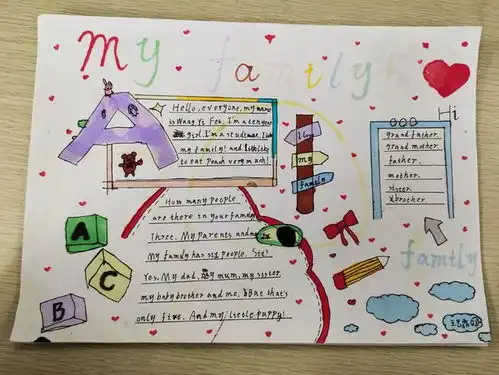 My family
Hello, everyone, my name
is Wang Yi Fei. I'm a ten year
girl. I'm a student. I love
my family! and I like the
to eat peach very much!
A
I love
my
family
Hi
grand father.
grand mother.
father.
mother.
sister.
brother.
How many people
are there in your family
Three. My parents and me.
My family has six people. Six?
Yes. My dad, my mum, my sister
my baby brother and me. But that's
only five. And my little puppy!
A
C
B
family